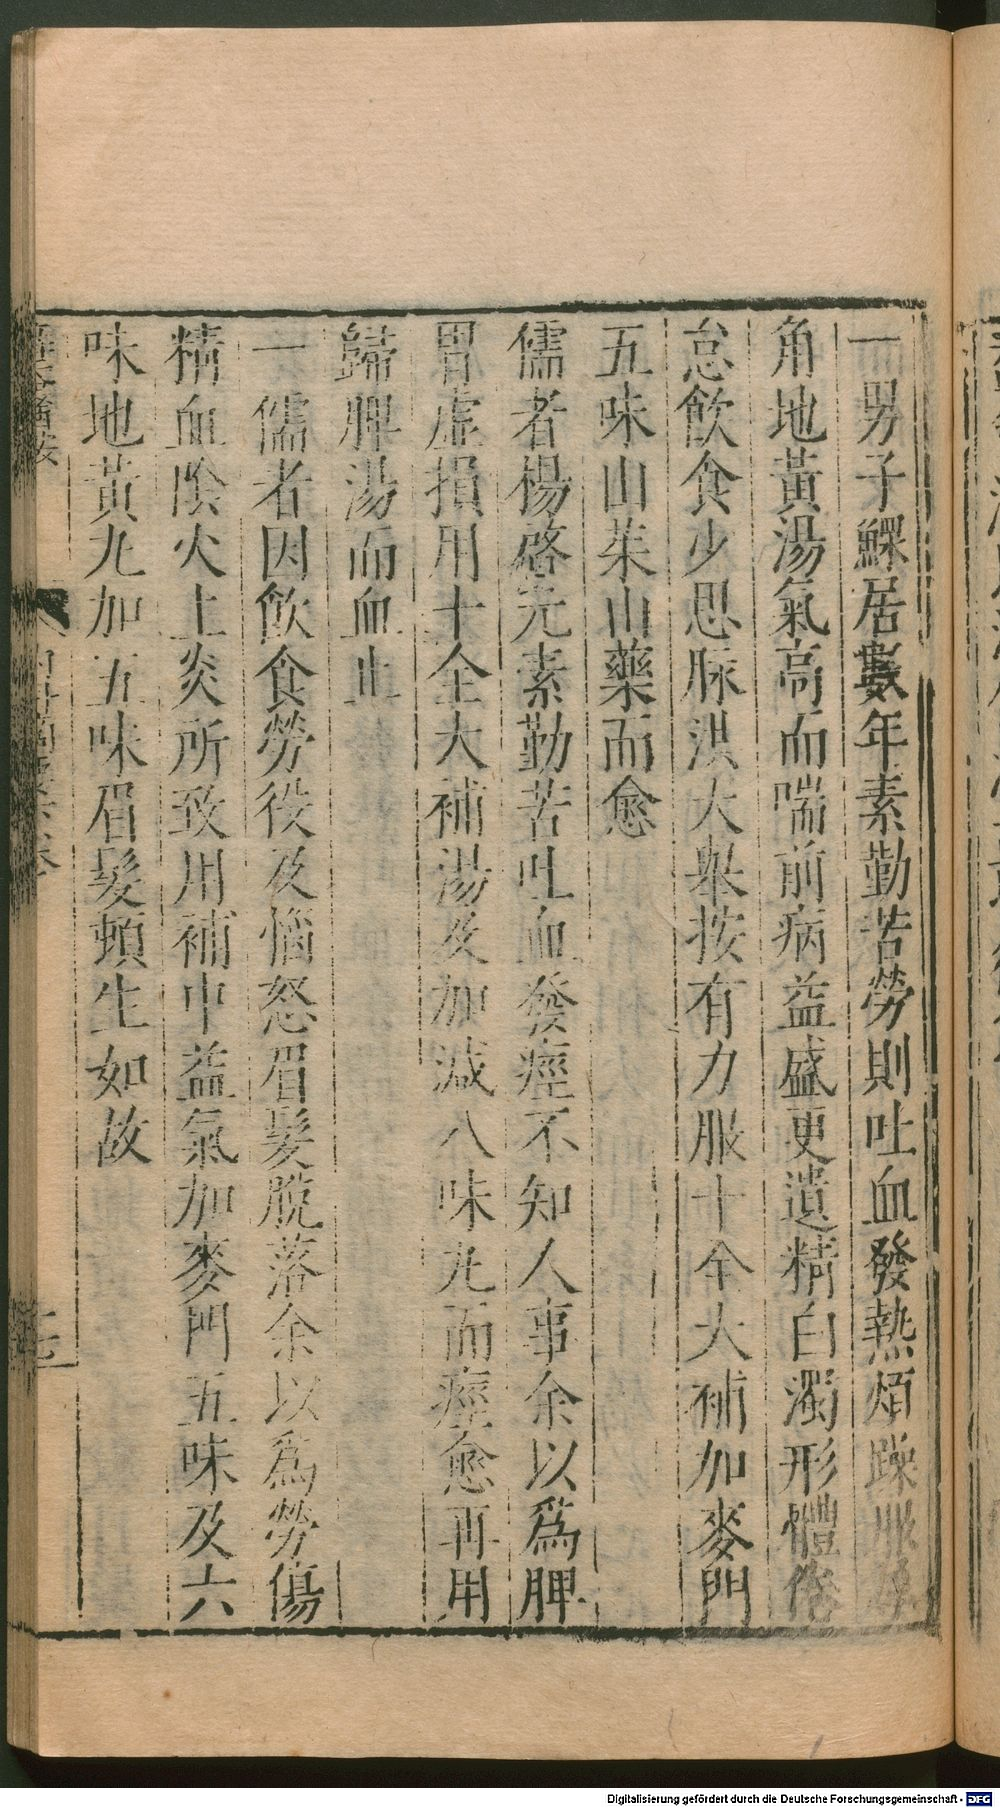 一男子鰥居數年素勤苦勞則吐血發熱煩躁服犀
角地黃湯氣高而喘前病益盛更遺精白濁形體倦
怠飲食少思脉洪大舉按有力服十全大補加麥門
五味山茱山藥而愈
儒者楊啓元素勤苦吐血發痙不知人事余以爲脾
胃虛損用十全大補湯及加減八味丸而痙愈再用
歸脾湯而血止
一儒者因飲食勞役及惱怒眉髮脫落余以爲勞傷
精血陰火上炎所致用補中益氣加麥門五味及六
味地黃丸加五味眉髮頓生如故
Digitalisierung gefördert durch die Deutsche Forschungsgemeinschaft - DFG